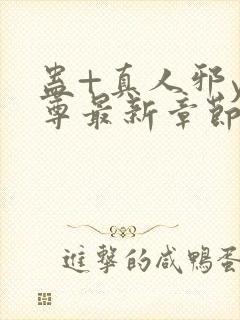 蛊+真人邪y
尊最新章節
進擊的咸鴨蛋